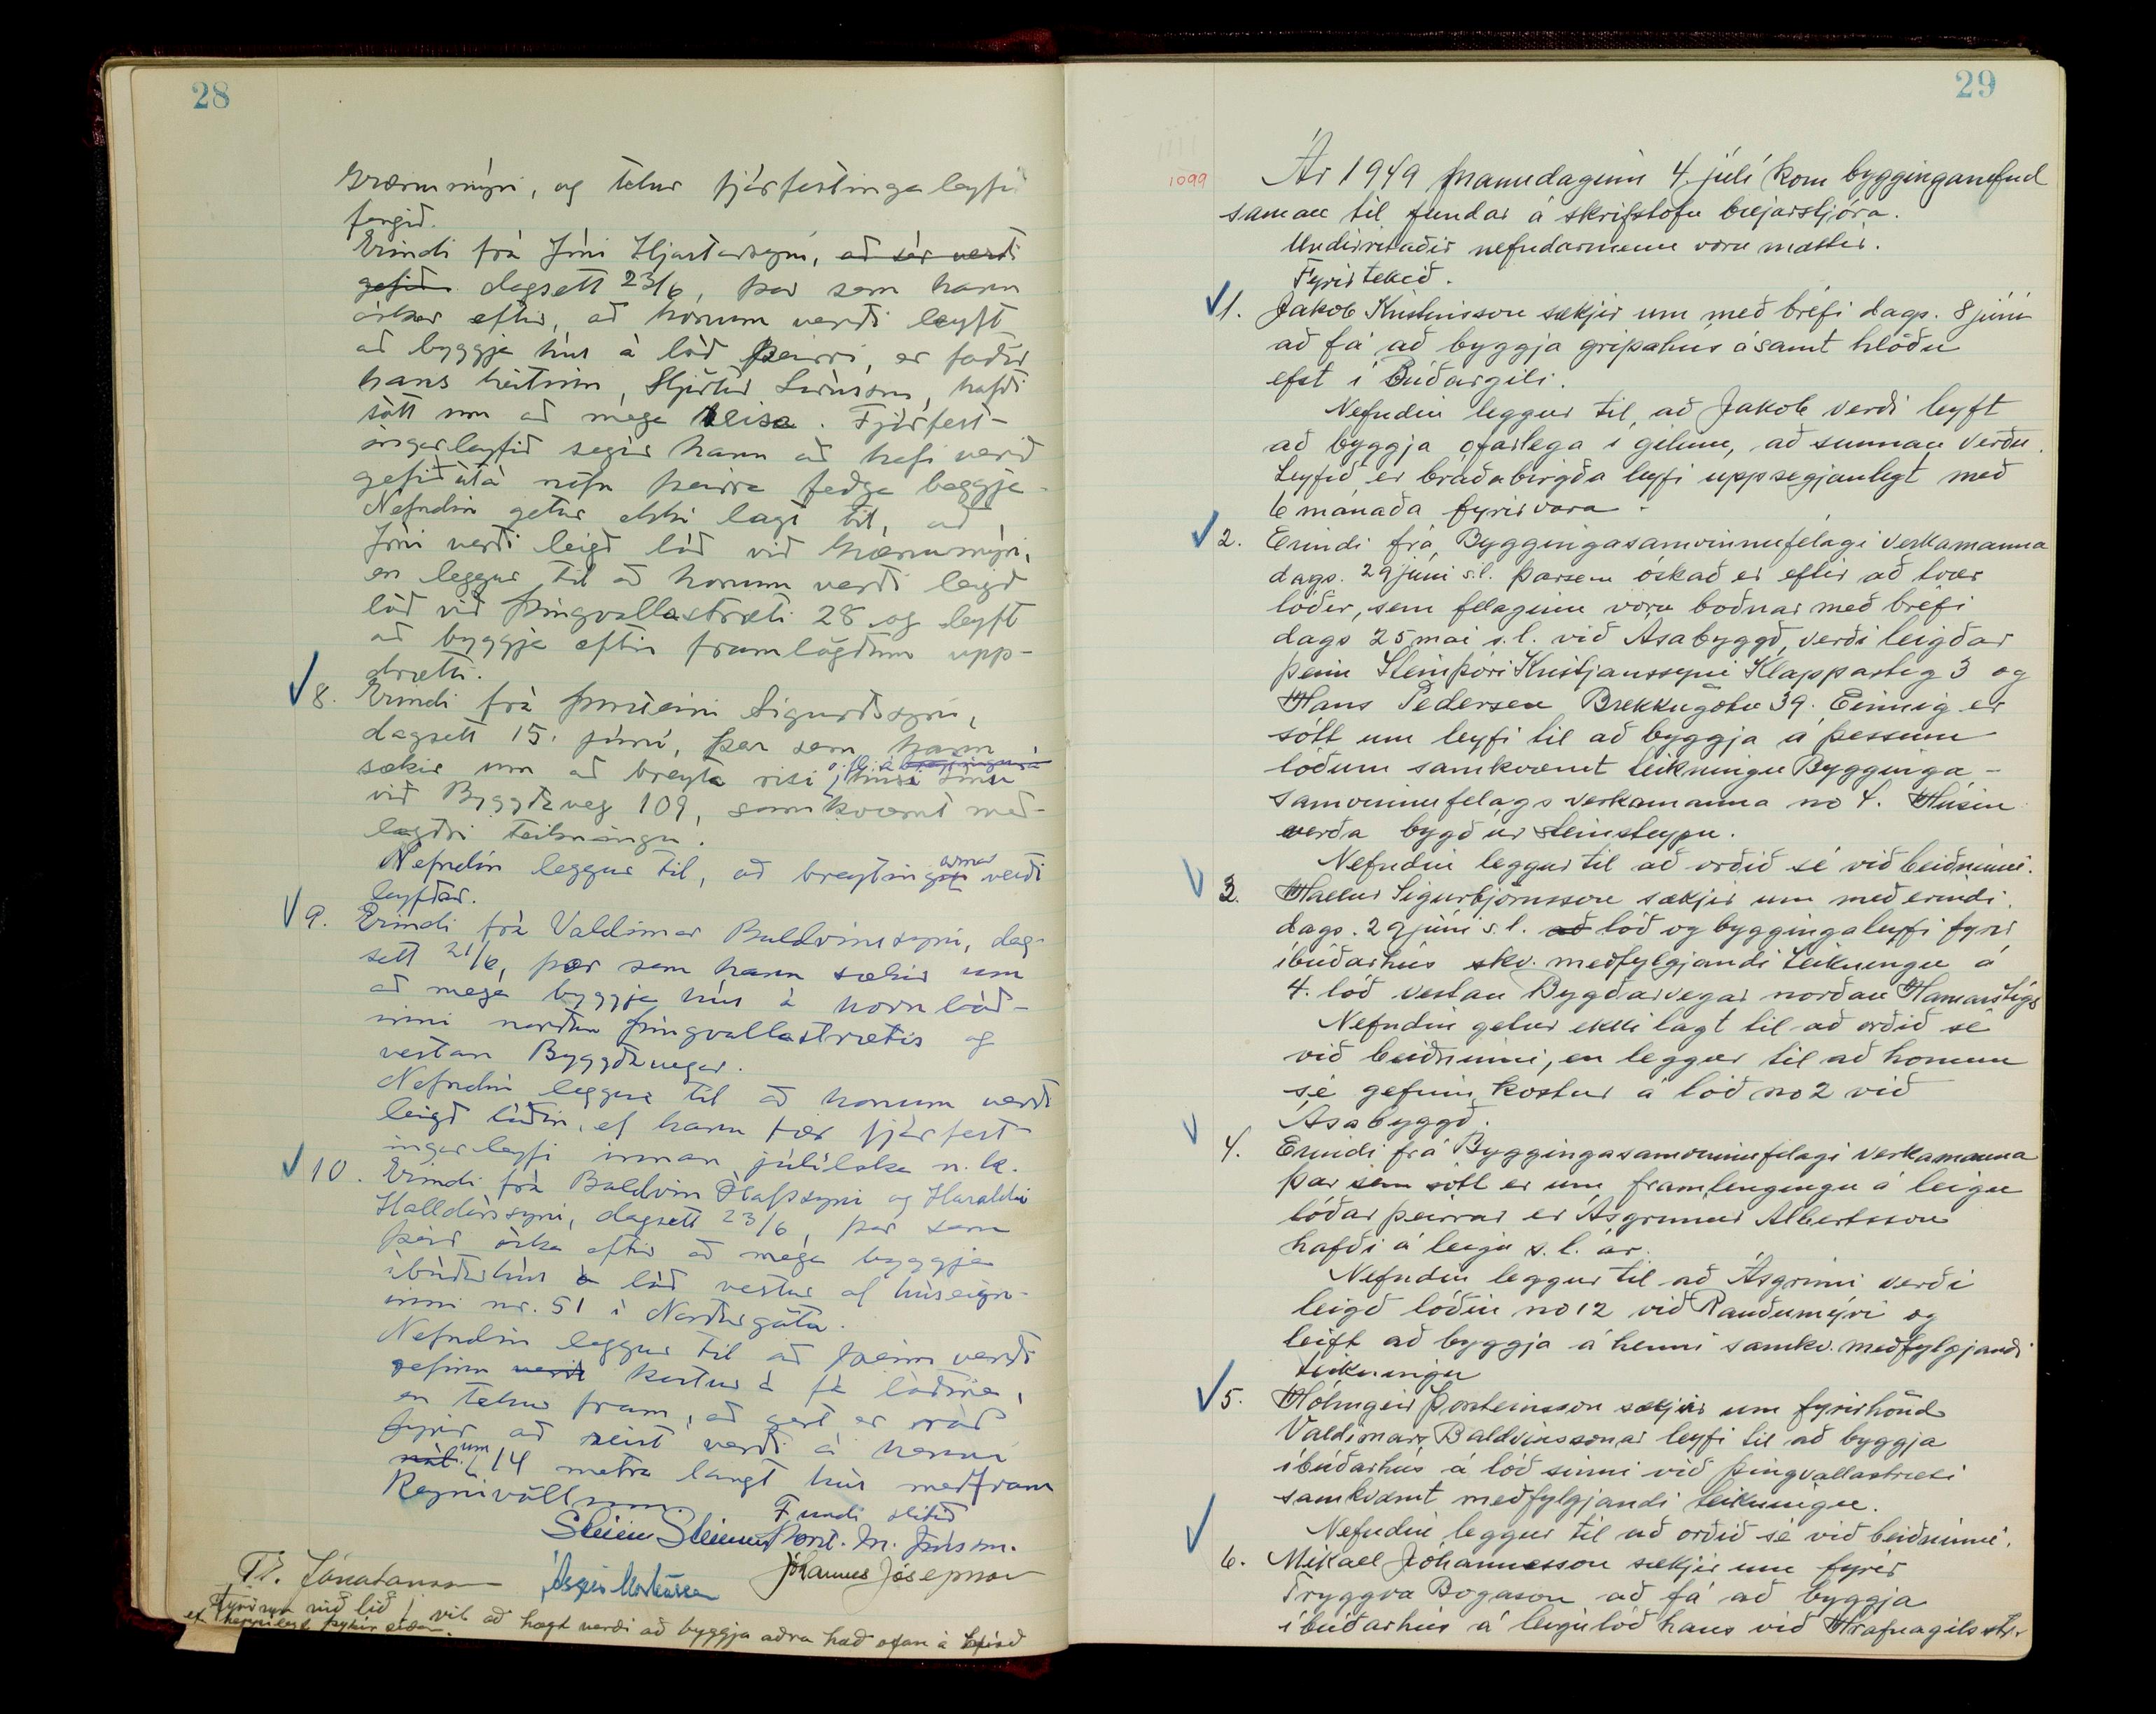 28
Grænumýri, og telur fjárfestingaleyfi
fengið.
Erindi frá Jóni Hjartarsyni, að sér verði
gefið dagsett 23/6, þar sem hann
óskar eftir, að honum verði leyft
að byggja hús á lóð þeirri, er faðir
hans heitinn, Hjörtur Lárusson, hafði
sótt um að mega reisa. Fjárfest-
ingarleyfið segir hann að hafi verið
gefið út á nöfn þeirra feðga beggja.
Nefndin getur ekki lagt til, að
Jóni verði leigð lóð við Grænumýri,
en leggur til að honum verði leigð
lóð við Þingvallastræti 28 og leyft
að byggja eftir framlögðum upp-
drætti.
8. Erindi frá Þorsteini Sigurðssyni,
dagsett 15. júní, þar sem hann
sækir um að breyta risi o. fl. á húsi sínu
við Byggðaveg 109, samkvæmt með-
lagðri teikningu.
Nefndin leggur til, að breytingarnar verði
leyfðar.
9. Erindi frá Valdimar Baldvinssyni, dag-
sett 21/6, þar sem hann sækir um
að mega byggja hús á hornlóð-
inni norðan Þingvallastrætis og
vestan Byggðavegar.
Nefndin leggur til að honum verði
leigð lóðin, ef hann fær fjárfest-
ingarleyfi innan júlíloka n.k.
10. Erindi frá Baldvin Ólafssyni og Haraldi
Halldórssyni, dagsett 23/6, þar sem
þeir óska eftir að mega byggja
íbúðarhús á lóð vestur af húseign-
inni nr. 51 í Norðurgötu.
Nefndin leggur til að þeim verði
gefinn verði kostur á fá lóðina,
en tekur fram, að gert er ráð
fyrir að reist verði á henni
um 14 metra langt hús meðfram
Reynivöllum.
Fundi slitið
Steinn Steinsen Þorst. M. Jónsson.
Tr. Jónatansson Ásgeir Markússon Jóhannes Jósepsson
við lið, vil að hægt verði að byggja aðra hæð ofan á
ef heppilegt þykir síðar.
29
1099
Ár 1949 mánudaginn 4. júlí kom bygginganefnd
saman til fundar á skrifstofu bæjarstjóra.
Undirritaðir nefndarmenn voru mættir.
Fyrirtekið.
1. Jakob Kristinsson sækjir um með bréfi dags. 8 júní
að fá að byggja gripahús ásamt hlöðu
efst í Búðargili.
Nefndin leggur til, að Jakob verði leyft
að byggja ofarlega í gilinu, að sunnan verðu.
Leyfið er bráðabirgða leyfi uppsegjanlegt með
6 mánaða fyrirvara.
2. Erindi frá Byggingasamvinnufélagi verkamanna
dags. 29 júní s.l. þarsem óskað er eftir að tvær
lóðir, sem félaginu voru boðnar með bréfi
dags 25 maí s.l. við Ásabyggð, verði leigðar
þeim Steinþóri Kristjánssyni Klapparstíg 3 og
Hans Pedersen Brekkugötu 39. Einnig er
sótt um leyfi til að byggja á þessum
lóðum samkvæmt teikningu Bygginga-
samvinnufelags verkamanna no 4. Húsin
verða bygð úr steinsteypu.
Nefndin leggur til að orðið sé við beiðninni.
3. Hallur Sigurbjörnsson sækjir um með erindi
dags. 29 júní s.l. að lóð og byggingaleyfi fyrir
íbúðarhús skv. meðfylgjandi teikningu á
4. lóð vestan Bygðarvegar norðan Hamarstígs
Nefndin getur ekki lagt til að orðið sé
við beiðninni, en leggur til að honum
sé gefinn kostur á lóð no 2 við
Ásabyggð.
4. Erindi frá Byggingasamvinnufélagi verkamanna
þar sem sótt er um framlengingu á leigu
lóðar þeirrar er Ásgrímur Albertsson
hafði á leigu s.l. ár.
Nefndin leggur til að Ásgrími verði
leigð lóðin no 12 við Rauðumýri og
leift að byggja á henni samkv. meðfylgjandi
teikningu
5. Hólmgeir Þorsteinsson sækjir um fyrirhönd
Valdimars Baldvinssonar leyfi til að byggja
íbúðarhús á lóð sinni við Þingvallastræti
samkvæmt meðfylgjandi teikningu.
Nefndin leggur til að orðið sé við beiðninni.
6. Mikael Jóhannesson sækjir um fyrir
Tryggva Bogason að fá að byggja
íbúðarhús á leigulóð hans við Hrafnagilsstr.